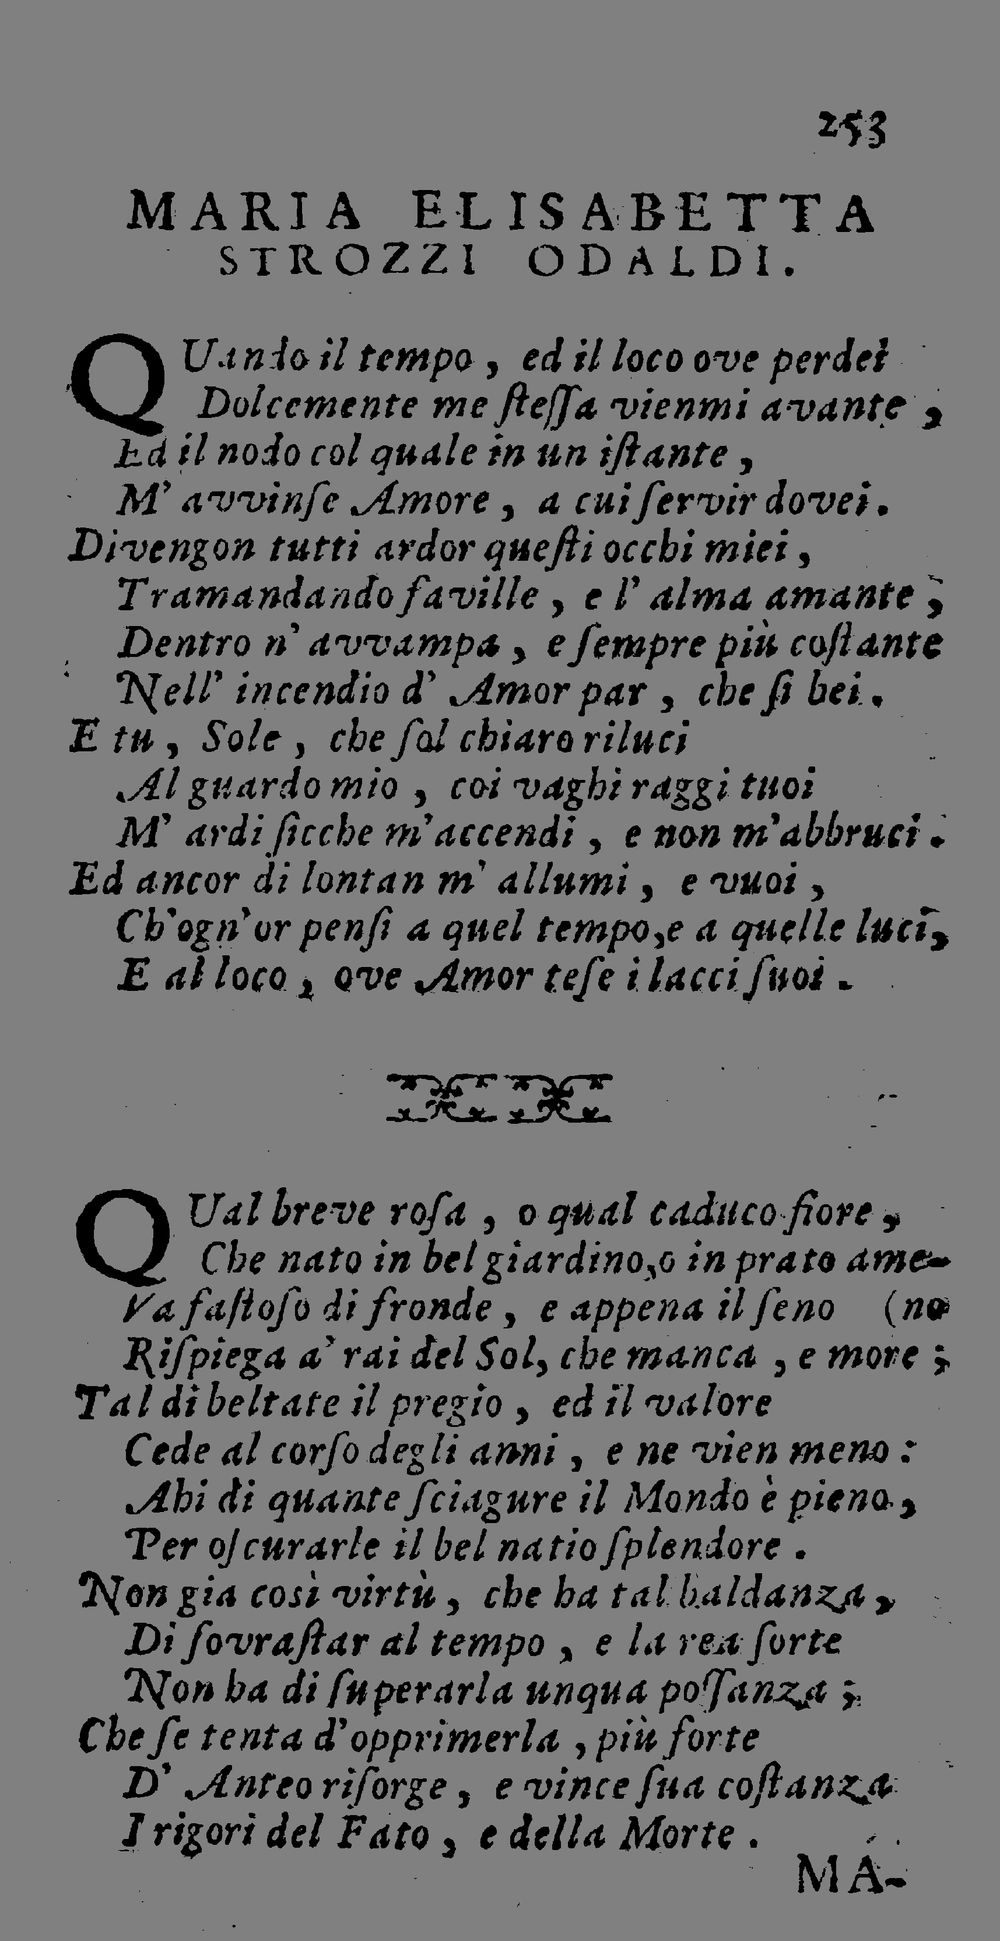 253
MARIA ELISABETTA
STROZZI ODALDI.
QUando il tempo, ed il loco ove perdei
Dolcemente me ſteſſa vienmi avante,
Ed il nodo col quale in un iſtante,
M' avvinſe Amore, a cui ſervir dovei.
Divengon tutti ardor queſti occhi miei,
Tramandando faville, e l' alma amante;
Dentro n' avvampa, e ſempre più coſtante
Nell' incendio d' Amor par, che ſi bei.
E tu, Sole, che ſol chiaro riluci
Al guardo mio, coi vaghi raggi tuoi
M' ardi ſicche m'accendi, e non m'abbruci.
Ed ancor di lontan m' allumi, e vuoi,
Ch'ogn'or penſi a quel tempo,e a quelle luci,
E al loco, ove Amor teſe i lacci ſuoi.
QUal breve roſa, o qual caduco fiore,
Che nato in bel giardino,o in prato ame-
Va faſtoſo di fronde, e appena il ſeno (no
Riſpiega a' rai del Sol, che manca, e more;
Tal di beltate il pregio, ed il valore
Cede al corſo degli anni, e ne vien meno:
Ahi di quante ſciagure il Mondo è pieno,
Per oſcurarle il bel natio ſplendore.
Non gia così virtù, che ha tal baldanza,
Di ſovraſtar al tempo, e la rea ſorte
Non ha di ſuperarla unqua poſſanza;
Che ſe tenta d'opprimerla, più forte
D' Anteo riſorge, e vince ſua coſtanza
I rigori del Fato, e della Morte.
MA-